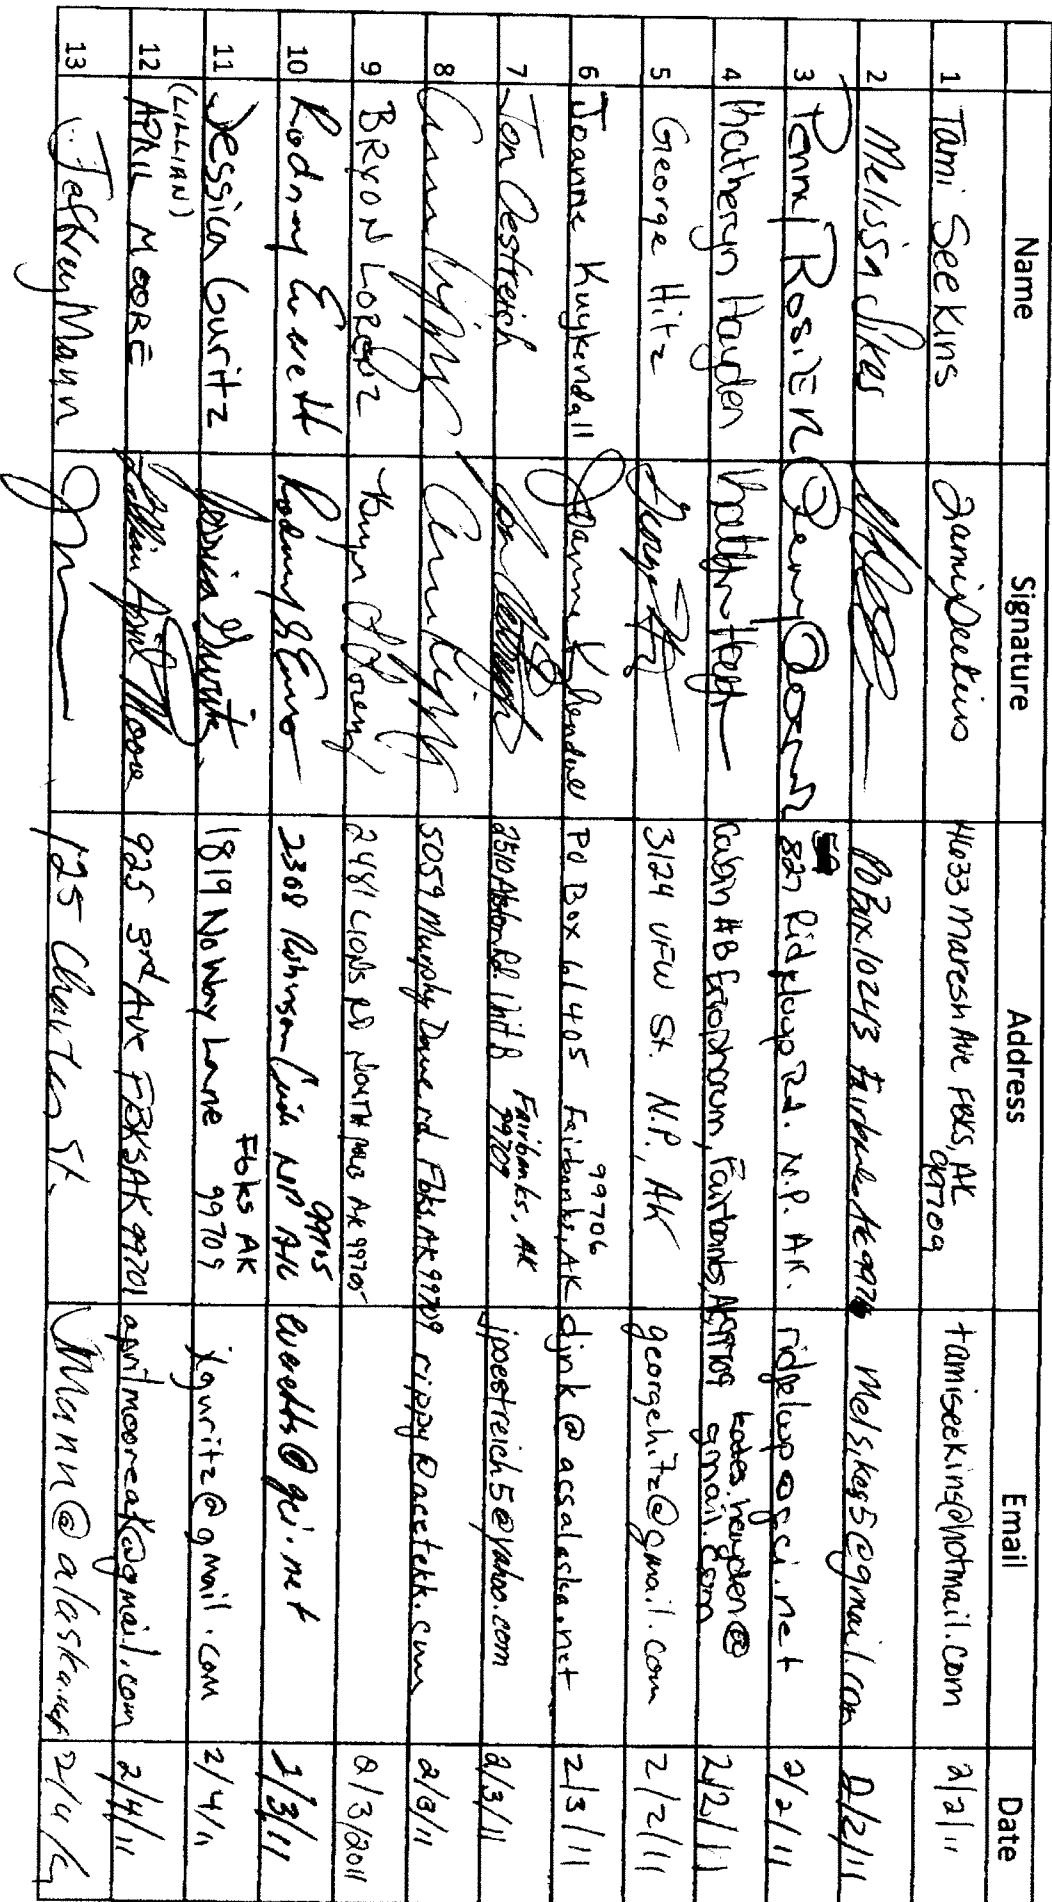 Name Signature Address Email Date
1 Tami Seekins Tami Seekins 4033 Maresh Ave FBKS, AK 99709 tamiseekins@hotmail.com 2/2/11
2 Melissa Sikes PO Box 10243 Fairbanks AK melsikes5@gmail.com 2/2/11
3 Penny Rosier 827 Ridgeloop Rd. N.P. AK. ridgeloop@gci.net 2/2/11
4 Katheryn Hayden Cabin #B Eriophorum, Fairbanks, AK 99709 hayden@gmail.com 2/2/11
5 George Hitz George Hitz 3124 VFW St. N.P., AK georgehitz@gmail.com 2/2/11
6 Joanne Kuykendall Joanne Kuykendall PO Box 61405 Fairbanks, AK 99706 djnk@acsalaska.net 2/3/11
7 Jon Oestreich Jon Oestreich Unit B Fairbanks, AK 99709 jpoestreich5@yahoo.com 2/3/11
8 5059 Murphy Dome rd. Fbks, AK 99709 2/3/11
9 BRYON LORENZ Bryon Lorenz 2481 LIONS RD NORTH POLE AK 99705 2/3/2011
10 Rodney Everett 2308 NP AK 99705 everetts@gci.net 2/3/11
11 Jessica Guritz Jessica Guritz 1819 No Way Lane Fbks AK 99709 jguritz@gmail.com 2/4/11
12 (LILLIAN) APRIL MOORE Lillian April Moore 925 3rd AVE FBKS AK 99701 aprilmooreak@gmail.com 2/4/11
13 Jeffrey Mann 125 Charles St. 2/4/11